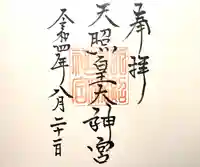 奉拝
天照皇大神宮
令和四年八月二十二日